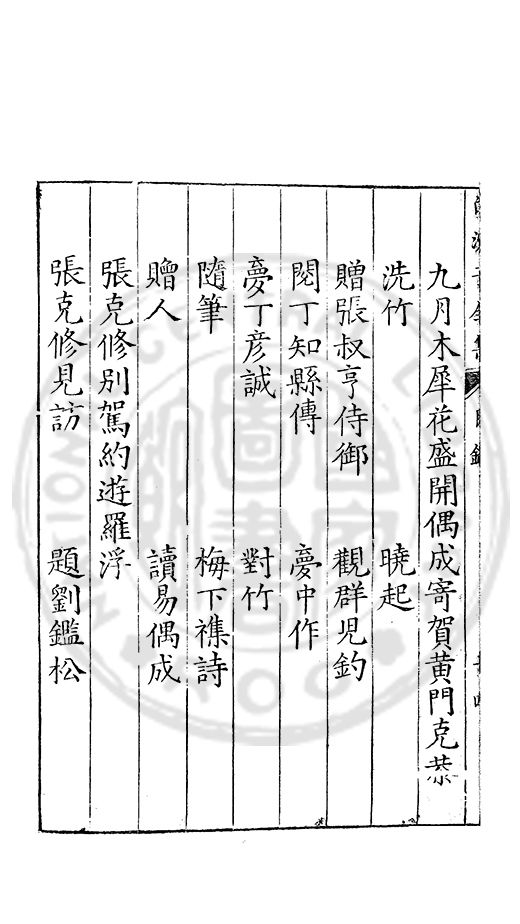 九月木犀花盛開偶成寄賀黃門克恭
洗竹 曉起
贈張叔亨侍御 觀群児釣
閱丁知縣傳 夢中作
夢丁彥誠 對竹
隨筆 梅下襍詩
贈人 讀易偶成
張克修別駕約遊羅浮
張克修見訪 題劉鑑松